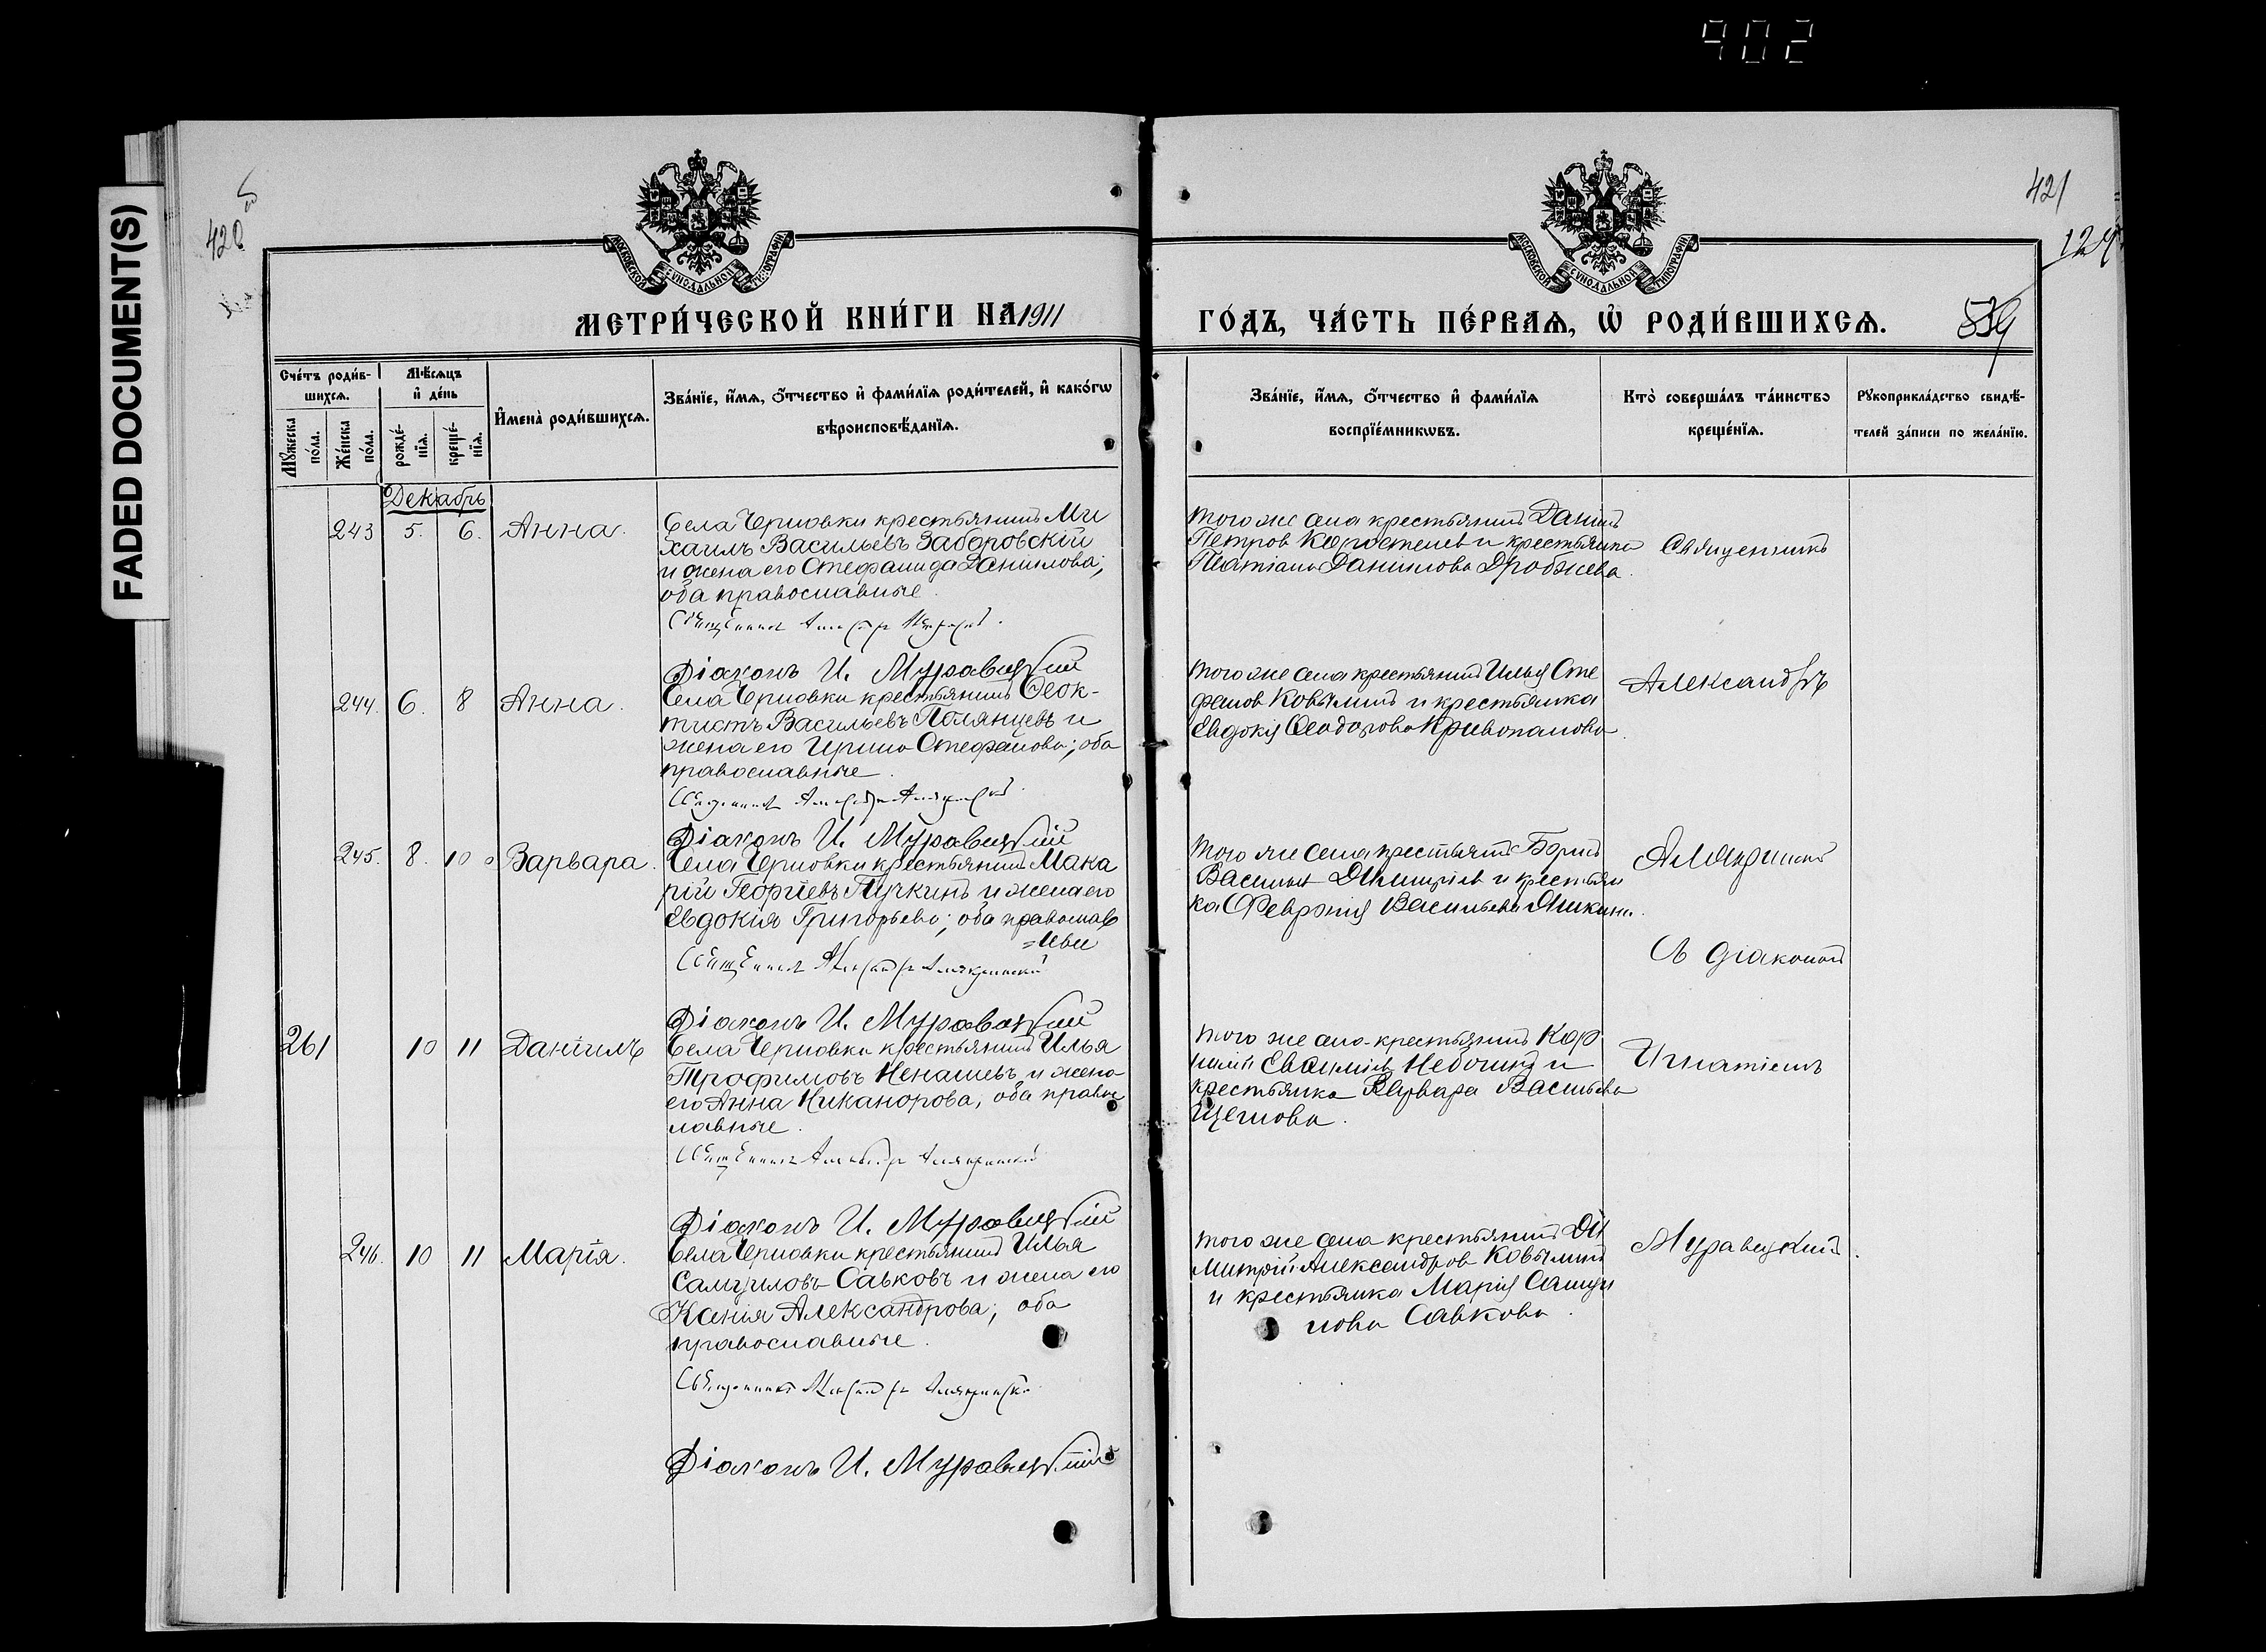 902
FADED DOCUMENT(S)
420
421
124
МОСКОВСКОЙ СѴНОДАЛЬНОЙ ТИПОГРАФІИ
МОСКОВСКОЙ СѴНОДАЛЬНОЙ ТИПОГРАФІИ
МЕТРИ́ЧЕСКОЙ КНИ́ГИ НА 1911
ГО́ДЪ, ЧА́СТЬ ПЕ́РВАѦ, Ѡ҆ РОДИ́ВШИХСѦ.
839
Сче́тъ роди́в-
шихсѧ.
Мꙋ́жеска
по́ла.
Же́нска
по́ла.
Мѣ́сѧцъ
и҆ де́нь
рожде́-
нїѧ.
креще́-
нїѧ.
И҆мена̀ роди́вшихсѧ.
Зва́нїе, и҆́мѧ, ѻ҆́тчество и҆ фами́лїѧ роди́телей, и҆ како́гѡ
вѣроисповѣ́данїѧ.
Зва́нїе, и҆́мѧ, ѻ҆́тчество и҆ фами́лїѧ
воспрїе́мникѡвъ.
Кто̀ соверша́лъ та́инство
креще́нїѧ.
Рꙋкоприкла́дство свидѣ́-
телей за́писи по жела́нїю.
Декабрь
243 5. 6. Анна.
Села Черновки крестьянинъ Ми
хаилъ Васильевъ Заборовскій
и жена его Стефанида Данилова;
оба православные.
Священникъ
Діаконъ И. Муравецкій
того же села крестьянинъ Даніилъ
Петров и крестьянка
Данилова
Священникъ
244. 6. 8 Анна.
Села Черновки крестьянинъ Ѳеок-
тистъ Васильевъ Полянцевъ и
жена его Ирина Стефанова; оба
православные.
Священникъ
Діаконъ И. Муравецкій
того же села крестьянинъ Илья Сте
фанов Ковылинъ и крестьянка
Евдокія Ѳеодорова
Александръ
245. 8. 10 Варвара.
Села Черновки крестьянинъ Мака
рій Георгіевъ Пучкинъ и жена его
Евдокія Григорьева; оба православ
=ные
Священникъ
Діаконъ И. Муравецкій
того же села крестьянинъ Борисъ
Васильев и крестьян
ка Феврония Васильева
Алякринскій
съ діакономъ
261 10 11 Даніилъ
Села Черновки крестьянинъ Илья
Трофимовъ Ненашевъ и жена
его Анна Никанорова, оба правос
лавные.
Священникъ
Діаконъ И. Муравецкій
того же села крестьянинъ Кор
нилій и
крестьянка Варвара Васильева
Щеглова.
Игнатіемъ
246. 10 11 Марія.
Села Черновки крестьянинъ Илья
Самуиловъ Савковъ и жена его
Александрова; оба
православные.
Священникъ
Діаконъ И. Муравецкій
того же села крестьянинъ Ди
митрій Александров Ковылинъ
и крестьянка Марія Самуи
лова Савкова.
Муравецкимъ.